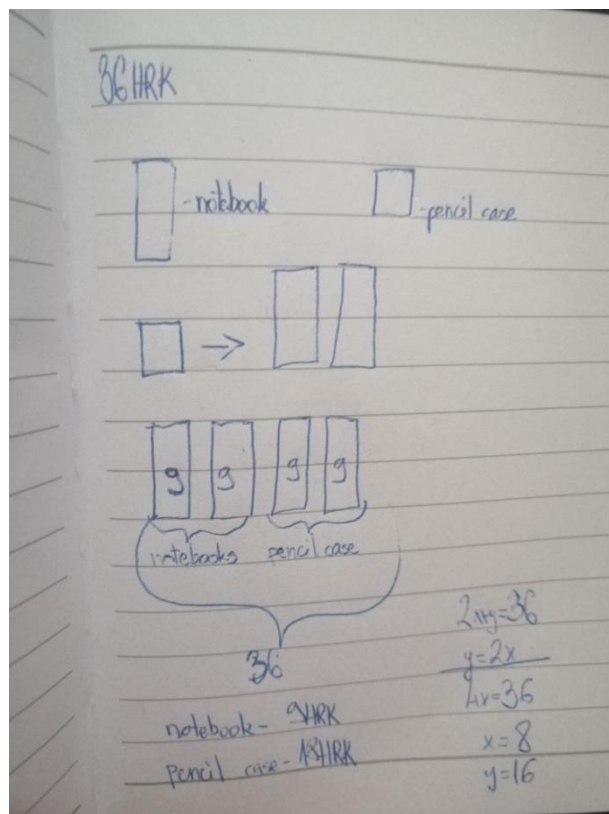 36 HRK
- notebook
- pencil case
→
9 9 9 9
notebooks pencil case
36
notebook - 9HRK
pencil case - 18HRK
2x+y=36
y=2x
4x=36
x=8
y=16